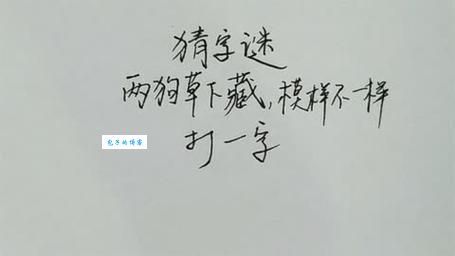 猜字谜
两狗草下藏，模样不一样
打一字
包子的博客